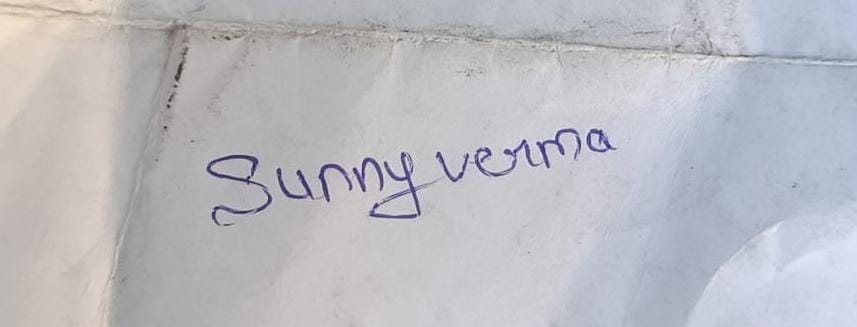 Sunny verma